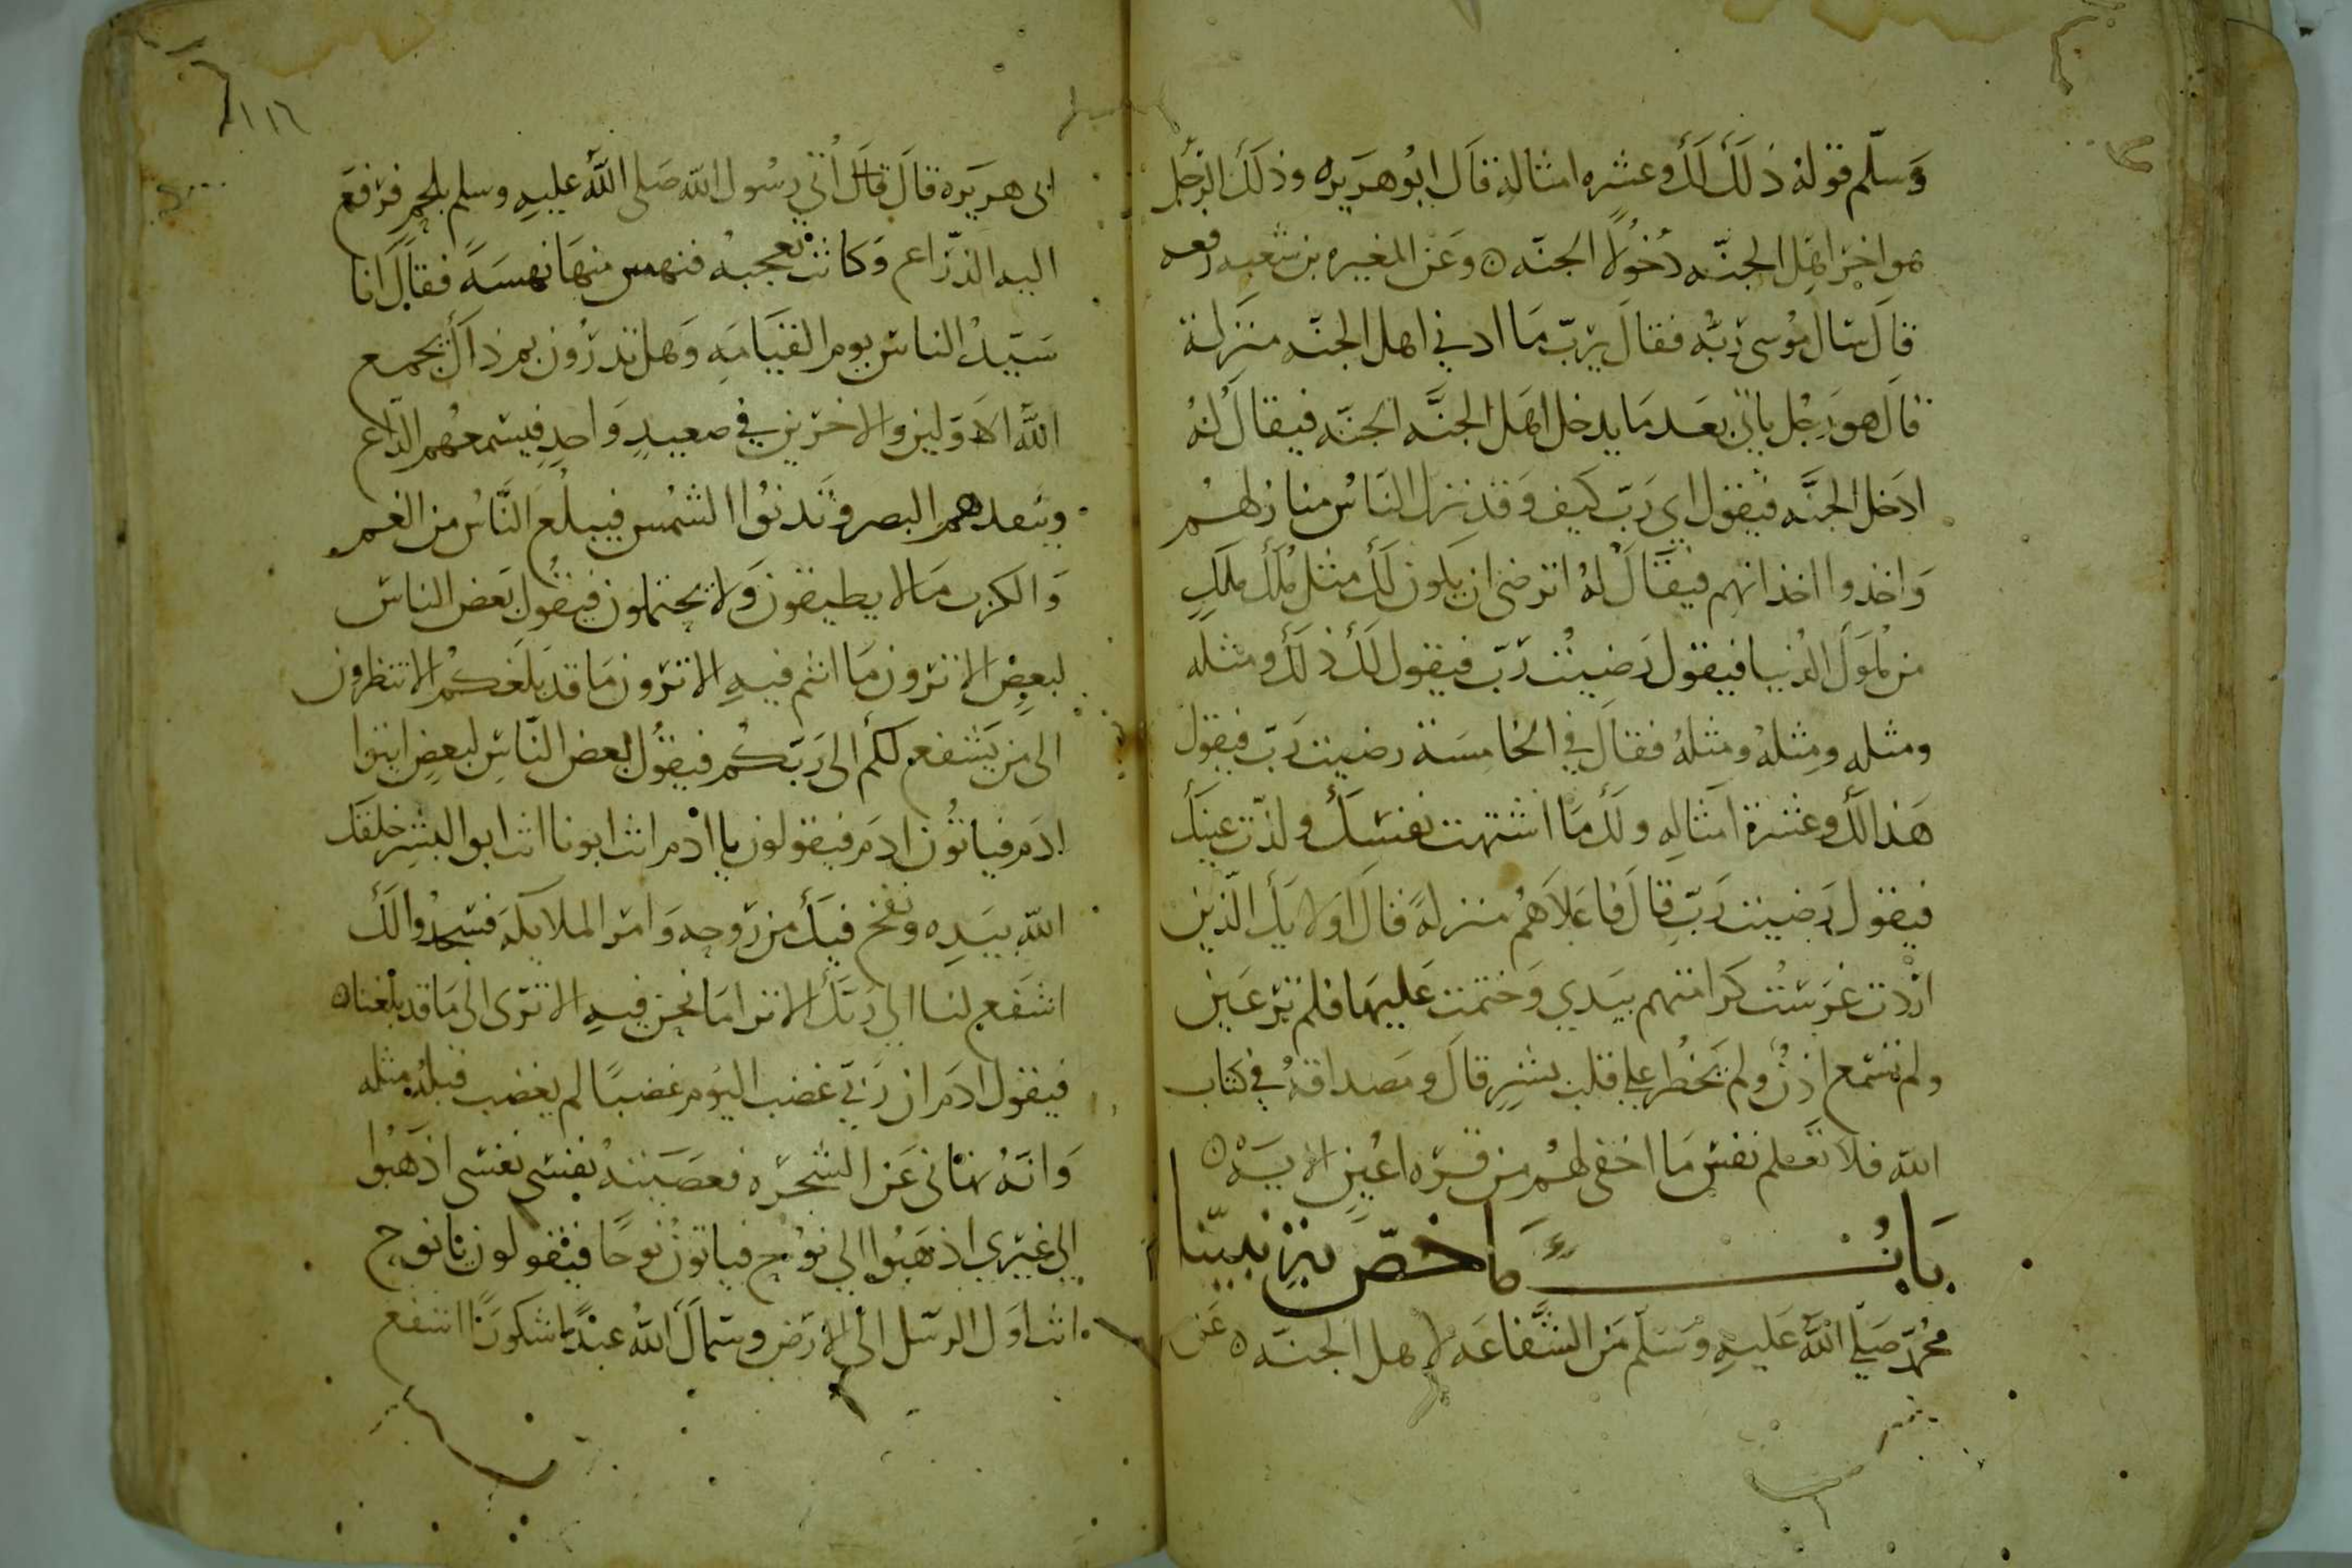 وَسلّم قوله ذلَكَ لَكَ وعشره امثاله قَال ابُو هرَيره وذلكَ الرَجُل
هو اخِرُ اهَل الجنّه دُخولًا الجنّه ه وعَن المغيره بن شعبه رفعه
قاَل سَال مُوسى رَبّهُ فقالَ يَرَبّ مَا ادني اهل الجنّه منَزِلة
قاَل هوَ رَجُل ياتي بعَد مَا يدخل اهَل الجنَّه الجنّه فيقالُ لهُ
ادَخل الجنَّه فيقول اي رَبّ كيَف وَقدَ نزل الناسُ منازلهُم
وَاخذوا اخذاتهم فيقَالُ لهُ اترضى ان يَكون لَكَ مثل مُلك ملَكٍ
من مُلوَك الدُنيا فيقول رَضيتُ رَبّ فيقول لكَ ذلَكَ ومثله
ومثله ومِثلهُ ومثلهُ فقالَ في الخامِسَة رضيت رَبّ فيقول
هَذا لَكَ وعشرة امَثالِهِ ولكَ مَا اشتهت نفسَكَ ولذّت عينكَ
فيقول رَضيت رَبّ قاَل فاعَلاَهُم منزلةً قاَل اوَلايكَ الّذين
ارَدت غرَستُ كرَامتهم بيَدي وَختمَت عَليهَا فلم ترَ عَين
ولم تسمَع اذنٌ ولم يَخطُر علي قلب بشرٍ قاَل ومصَداقهُ في كتاب
الله فلاَ تعَلم نفسٌ مَا اخفي لهُم من قرّه اعُينٍ الايَه ه
بَابُ مَا خصّ بِهِ نبيّنا
محُمدّ صَلّي اللهُ عَليهِ وَسَلّم مَن الشَّفاعَه لاهل الجنّه ه عَن
ابى هرَيَره قاَل قاَل أُتي رسُول الله صَلى اللهُ عليهِ وسلم بلحمٍ فرفعَ
اليه الذرّاع وَكانت تُعجبهُ فنهس منهَا نهسَةً فقاَل انَا
سَيّدُ الناسِ يوم القيَامَهِ وَهل تدرُون بم ذاَكَ يجمع
اللهُ الاَوّلين والاخرَين في صعيدٍ وَاحدٍ فيسَمعهُم الدّاع
وينفدهم البصر وَتَدنوُا الشمُس فيبلغ النَّاسُ من الغم
وَالكرَب مَا لا يطيقون وَلا يحتملون فيقُول بعَض الناسِ
لبعضٍ الا ترَون مَا انتم فيهِ الا ترَون مَا قد بَلغَكم الا تنظرون
الى من يشَفع لكُم الى رَبّكُم فيقُول بعض الناّسِ لبعضٍ ايتوا
ادَم فياتُون ادَم فيقولون يا ادَم انت ابونا انت ابو البشر خلقكَ
الله بيَدِه ونفخ فيَكَ من روحه وَامرَ الملايكَهَ فسَجدُوا لكَ
اشَفع لنا الي رَبّكَ الا ترا مَا نحن فيهِ الا ترَى الي مَا قدَ بلغنا ه
فيقول ادَم ان رَبّي غضب اليوَم غضبًا لم يغضب قبلهُ مثله
وَانهُ نهَاني عَن الشجَره فعصَيتهُ نفسي نفسي اذهَبُوا
الي غيَري اذهَبُوا الي نوُح فياتوُن نوُحًا فيقولون يا نوح
انت اوَل الرسَل الى الارَض وسماكَ اللهُ عبدًا شكورًا اشفع
١١٦